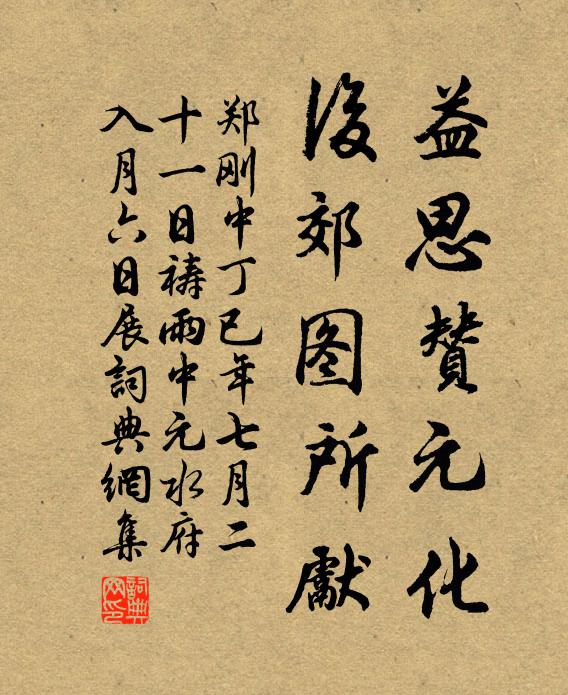 益思赞元化
后郊图所献
郑刚中丁巳年七月二
十一日祷雨中元水府
入月六日展词典网集
词典网印